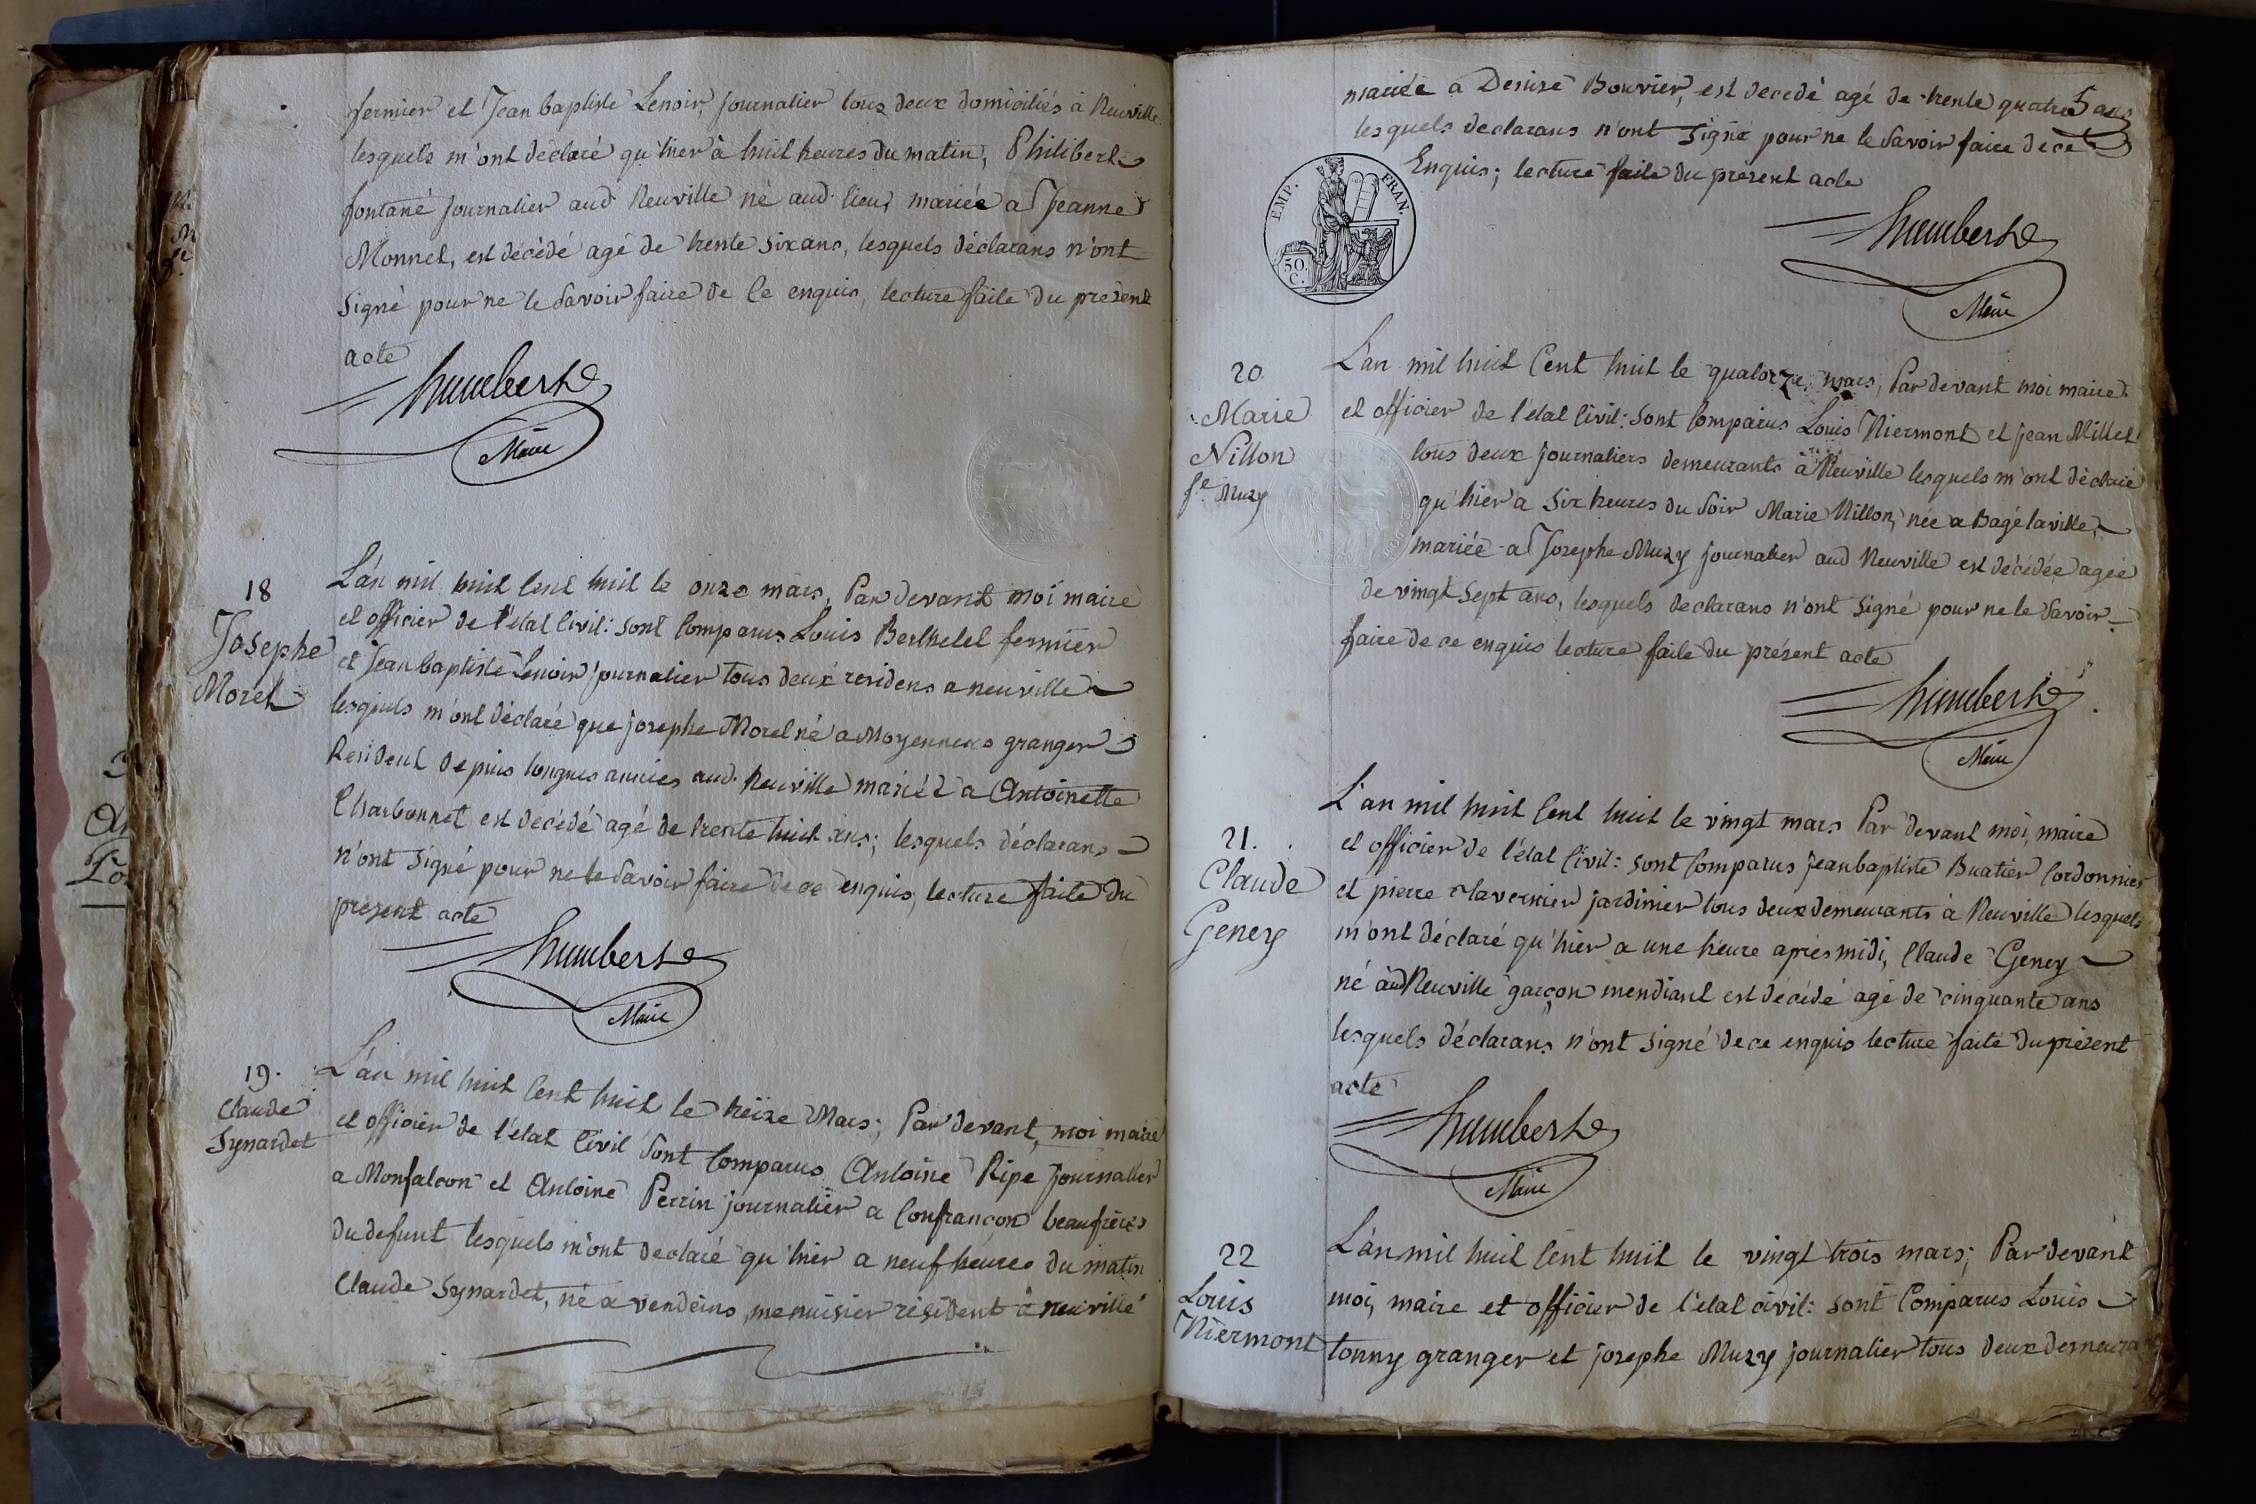 fermier et Jean baptiste Lenoir, journalier tous deux domiciliés à Neuville
lesquels m'ont déclaré qu'hier à huit heures du matin, Philibert
fontané journalier aud. Neuville né aud. lieu, mariée a Jeanne
Monnet, est décédé agé de trente six ans, lesquels déclarans n'ont
signé pour ne le Savoir faire de Ce enquis, lecture faite du present
acte
humbert
Maire
18
Josephe
Morel
L'an mil huit Cent huit le onze mars, Par devant moi maire
et officier de l'état Civil: sont Comparus Louis Berthelet fermier
et Jean baptiste Lenoir journalier tous deux residens a neuville
lesquels m'ont déclaré que josephe Morel né a Moyennens granger
Resident depuis longues années aud. Neuville mariée a Antoinette
Charbonnet est decédé agé de trente huit ans; lesquels déclarans
n'ont signé pour ne le Savoir faire de ce enquis, lecture faite du
présent acte
humbert
Maire
19.
Claude
Synardet
L'an mil huit Cent huit le treize Mars; Par devant moi maire
et officier de l'état Civil Sont Comparus Antoine Ripe journalier
a Monfalcon et Antoine Perrin journalier a Confrançon beaufrères
du defunt lesquels m'ont declaré qu'hier a neuf heures du matin
Claude Synardet, né a vendeins, menuisier résident à neuville
mariée a Denise Bouvier, est decedé agé de trente quatre ans
5
lesquels declarans n'ont signé pour ne le Savoir faire de ce
Enquis; lecture faite du présent acte
EMP. FRAN.
50. C.
humbert
Maire
20.
Marie
Nillon
fe Muzy
L'an mil huit Cent huit le quatorze mars, Par devant moi maire
et officier de l'état Civil: sont Comparus Louis Niermont et jean Millet
tous deux journaliers demeurants à Neuville lesquels m'ont déclaré
qu'hier a six heures du Soir Marie Nillon, née a Bagé laville,
mariée a Josephe Muzy journalier aud Neuville est décédée agée
de vingt sept ans, lesquels declarans n'ont signé pour ne le Savoir
faire de ce enquis lecture faite du présent acte
humbert
Maire
21.
Claude
Geney
L'an mil huit Cent huit le vingt mars Par devant moi, maire
et officier de l'état Civil: sont Comparus jean baptiste Buatier Cordonnier
et pierre Tavernier jardinier tous deux demeurants à Neuville lesquels
m'ont déclaré qu'hier a une heure après midi, Claude Geney
né aud Neuville garçon mendiant est décédé agé de cinquante ans
lesquels déclarans n'ont signé de ce enquis lecture faite du présent
acte
humbert
Maire
22
Louis
Niermont
L'an mil huit Cent huit le vingt trois mars; Par devant
moi, maire et officier de l'état civil: sont Comparus Louis
tonny granger et josephe Muzy journalier tous deux